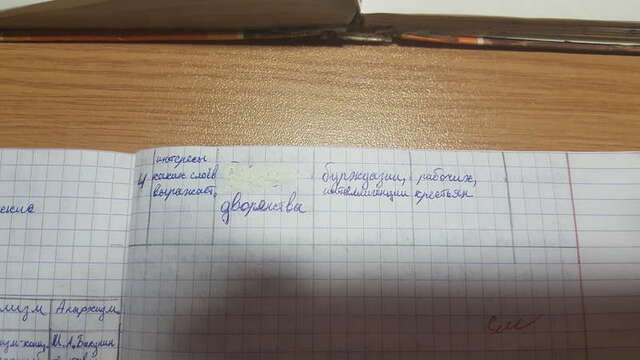 интересы
4 каких слоёв
выражает
дворянства
буржуазии,
интеллигенции
рабочих,
крестьян
ские
лизм Анархизм
М.А. Бакунин
См